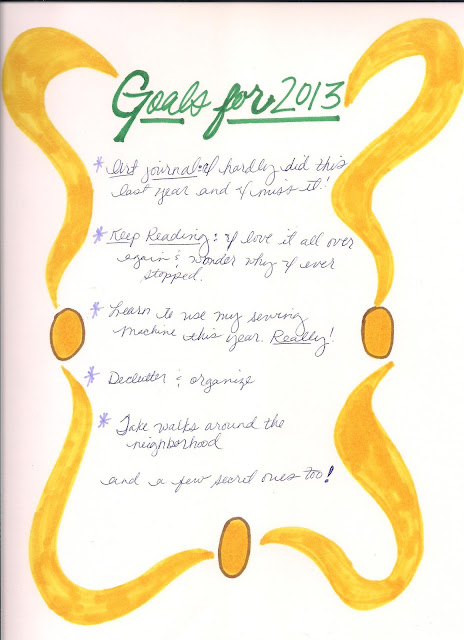 Goals for 2013
* Art journal: I hardly did this
last year and I miss it!
* Keep Reading: I love it all over
again & wonder why I ever
stopped.
* Learn to use my sewing
machine this year. Really!
* Declutter & organize
* Take walks around the
neighborhood
and a few secret ones too!